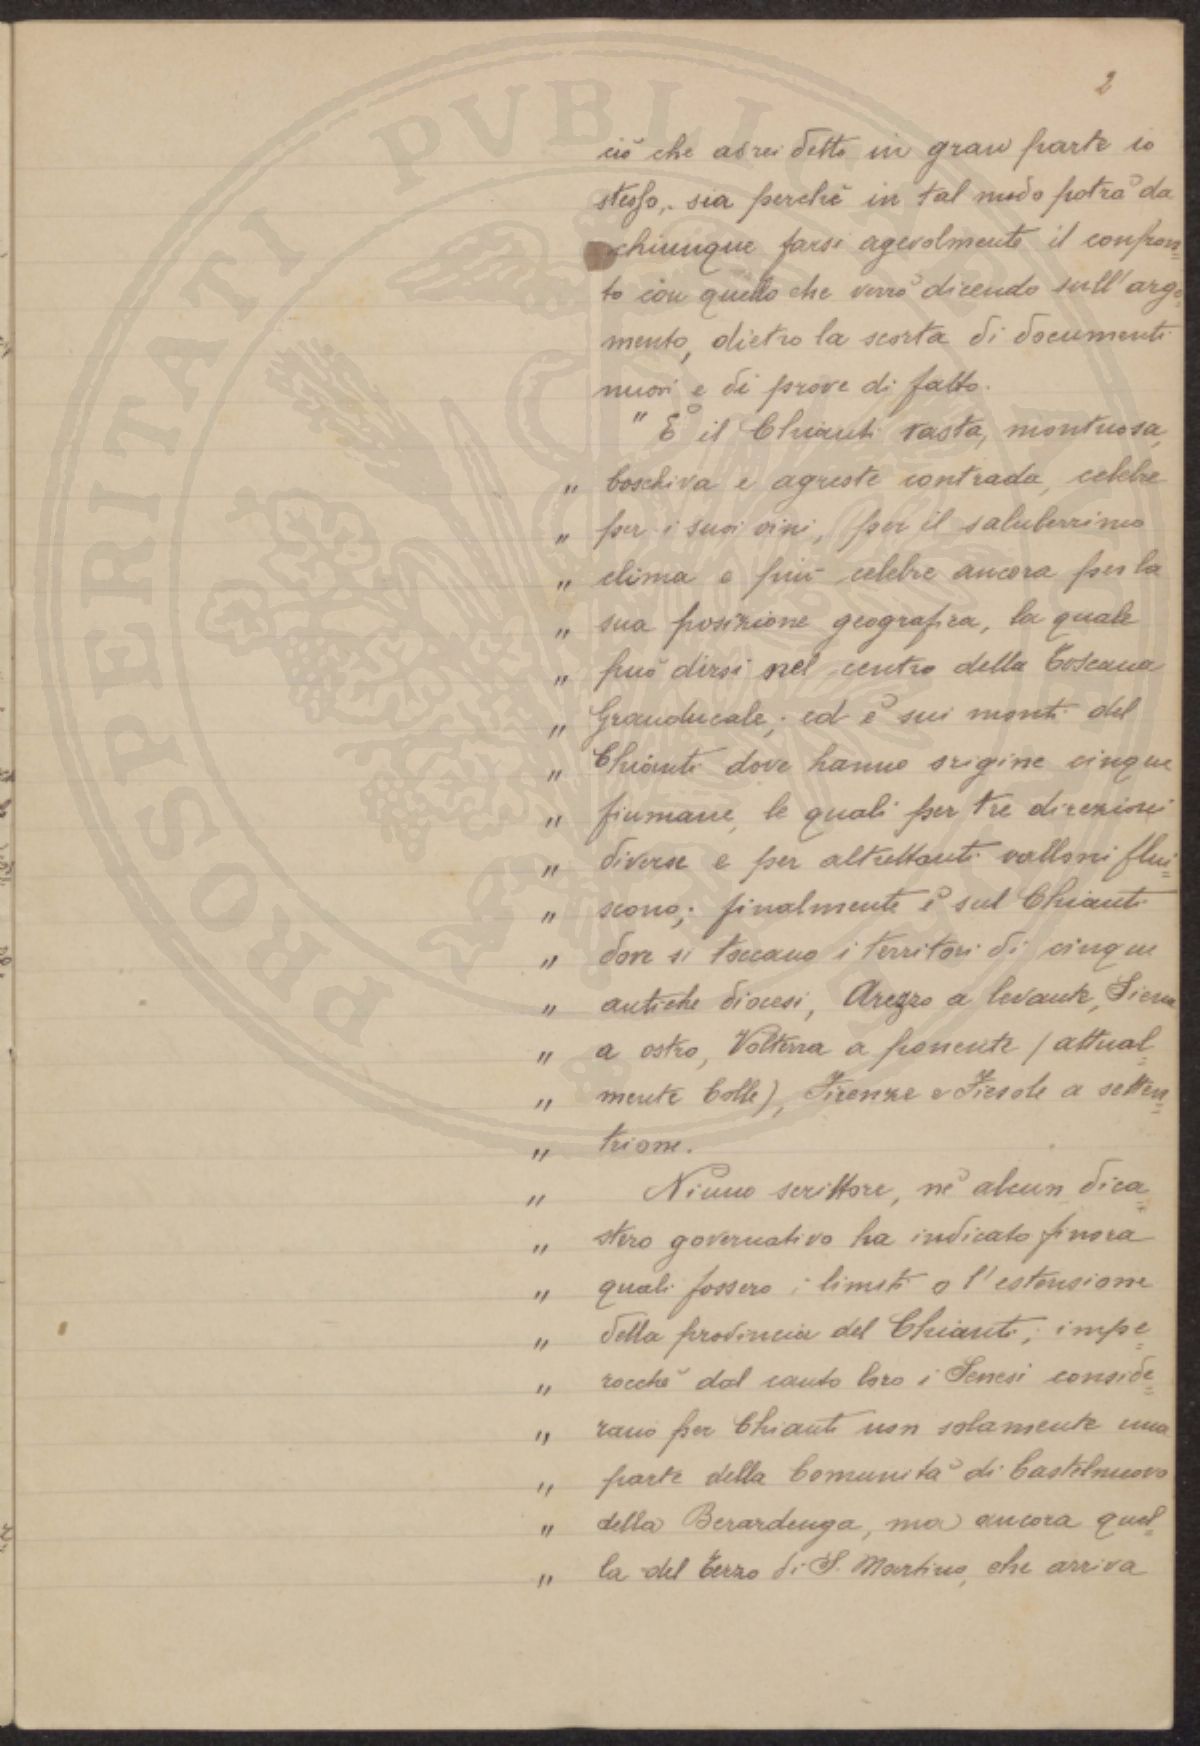 2
ciò che avrei detto in gran parte io
stesso, sia perchè in tal modo potrà da
chiunque farsi agevolmente il confron=
to con quello che verrò dicendo sull'argo=
mento, dietro la scorta di documenti
nuovi e di prove di fatto.
" È il Chianti vasta, montuosa,
" boschiva e agreste contrada, celebre
" per i suoi vini, per il saluberrimo
" clima e più celebre ancora per la
" sua posizione geografica, la quale
" può dirsi nel centro della Toscana
" Granducale; ed è sui monti del
" Chianti dove hanno origine cinque
" fiumane, le quali per tre direzioni
" diverse e per altrettanti valloni flui=
" scono; finalmente è sul Chianti
" dove si toccano i territori di cinque
" antiche diocesi, Arezzo a levante, Siena
" a ostro, Volterra a ponente (attual=
" mente Colle), Firenze e Fiesole a setten=
" trione.
" Niuno scrittore, nè alcun dica=
" stero governativo ha indicato finora
" quali fossero i limiti o l'estensione
" della provincia del Chianti; impe=
" rocchè dal canto loro i Senesi conside=
" rano per Chianti non solamente una
" parte della Comunità di Castelnuovo
" della Berardenga, ma ancora quel=
" la del Terzo di S. Martino, che arriva
PROSPERITATI PVBLICAE